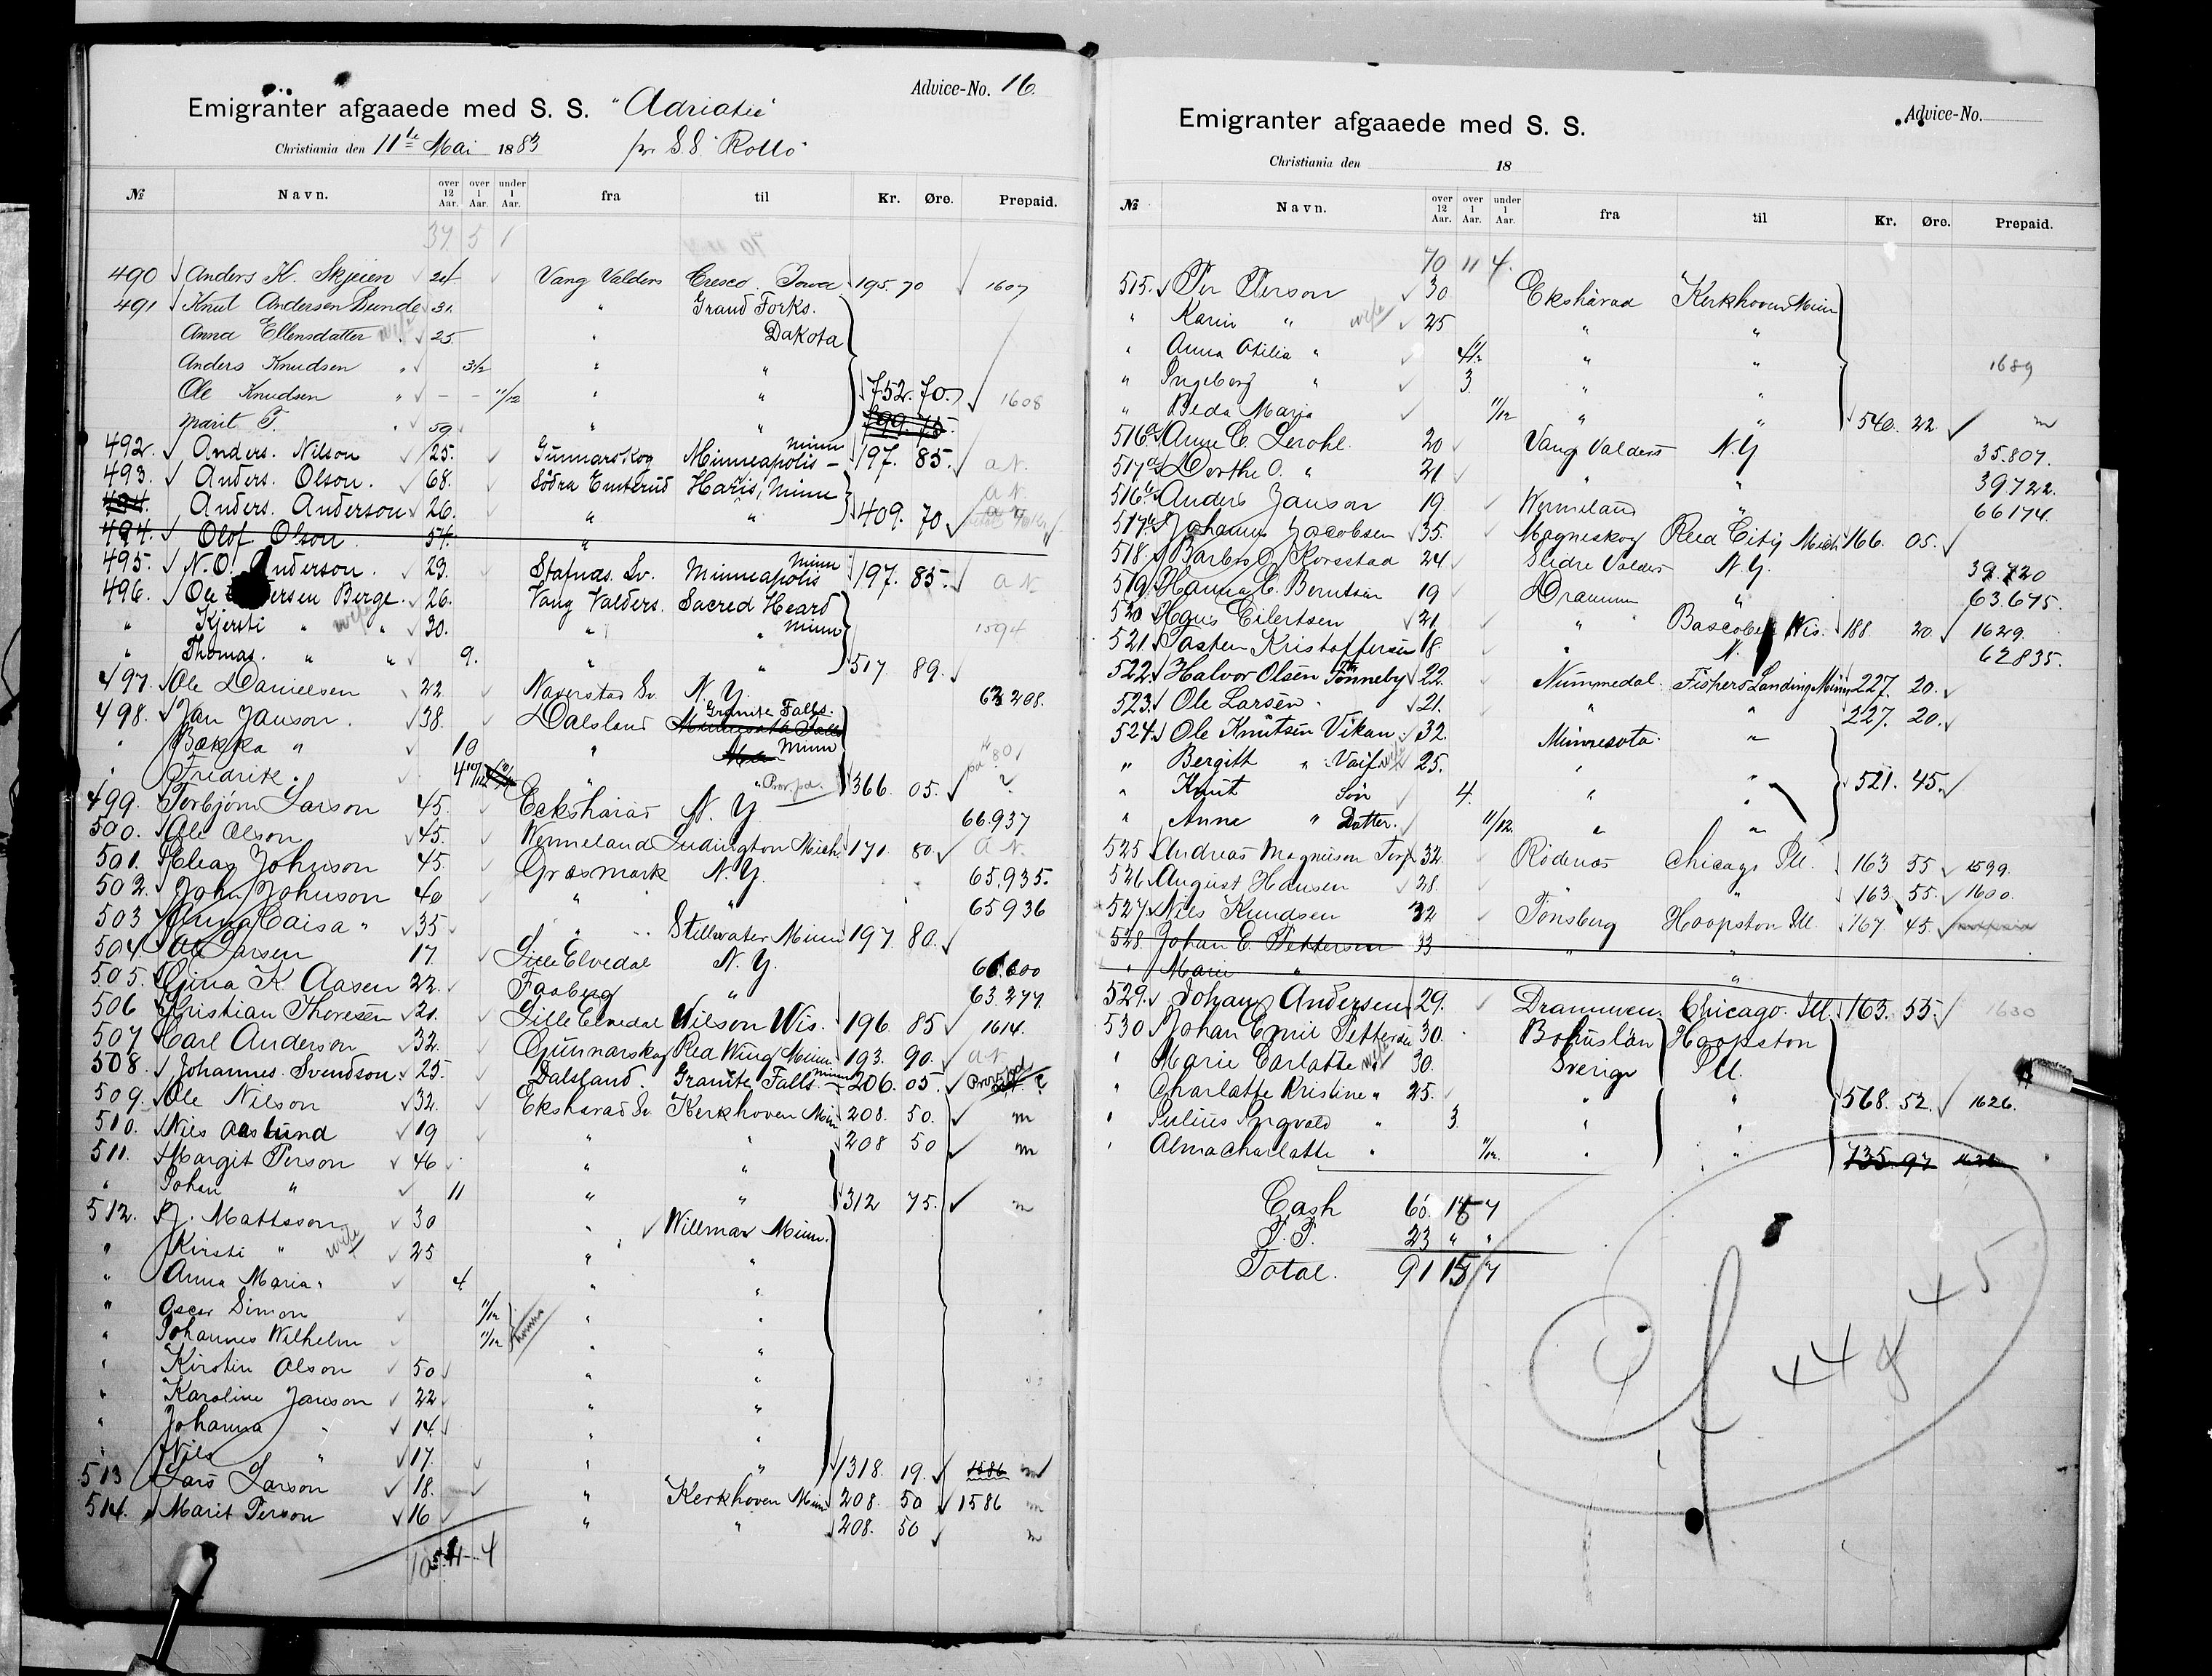 Advice-No. 16.
Emigranter afgaaede med S. S. "Adriatic"
Christiania den 11te Mai 1883 pr S.S. "Rollo"
№ Navn. over 12 Aar. over 1 Aar. under 1 Aar. fra til Kr. Øre. Prepaid.
37 5 1
490 Anders K. Skjeien 24 Vang Valders Cresco Iowa 195. 70 1607
491 Knut Andersen Sunde 31. " Grand Forks.
Anna Ellensdatter wife 25 " Dakota
Anders Knudsen " 3 1/2 " "
Ole Knudsen " - - 11/12 " " 752. 70. 1608
Marit T. " 59 " " 799. 75.
492. Anders. Nilson 25. Gunnarskog Minneapolis - Minn 197. 85. a N.
493. Anders. Olson. 68. Södra Emterud Haris, Minn a N.
494. Anders. Anderson 26. " " 409. 70
494. Olof Olson 54. "
495. N. O. Anderson. 29. Stafnäs. Sv. Minneapolis Minn 197. 85. a N.
496. Ole Berge. 26. Vang Valders. Sacred Heard
" Kjersti " wife " 30. " " Minn 1594
" Thomas. " " 9. " " 517 89.
497. Ole Danielsen 22. Naverstad Sv. N. Y. 63 208.
498. Jan Janson. 38. Dalsland Granite Falls. Minnesota Falls
" Bækka " 10 " Minn
" Fredrik. 4 10/12 " " Prov. pd. 366. 05. ?
499. Torbjörn Larson 45. Eckshärad N. Y. 66.937
500. Ole Olson 45. Wermeland Ludington Mich. 171. 80. a N.
501. Johnson 45. Gräsmark N. Y. 65.935.
502. John Johnson 40 " " 65936
503 Anna Caisa " 35 " " Stillwater Minn 197. 80.
504. Ole Larsen 17. Lille Elvedal N. Y.
505. Gina K. Aasen 22. Faaberg " 63.277
506 Kristian Thoresen 21. Lille Elvedal Wilson Wis. 196. 85 1614.
507 Carl Anderson 32. Gunnarskog Red Wing Minn. 193. 90. a N.
508. Johannes. Svendson. 25. Dalsland. Granite Falls. Minn - 206. 05. Prov. pd ?
509. Ole Nilson 32. Ekshärad Sv. Kerkhoven Min 208. 50. m
510. Nils Aaslund 19 " " 208 50 m
511. Margit Person 46 " "
" Johan " 11 " " 312 75. m
512. J. Mattsson 30 " Willmar Minn.
" Kirsti " wife 25 " "
" Anna Maria " 4 " "
" Oscar Simon 11/12 " "
" Johannes Wilhelm 11/12 " "
" Kirstin Olson 50 " "
" Karoline Janson 22 " "
" Johanna " 14. " "
" Nils " 17. " " 1318. 19. 1586 m
513 Lars Larson 18. " Kerkhoven Min 208. 50 1586 m
514. Marit Person 16 " " 208. 50 m
4
Advice-No.
Emigranter afgaaede med S. S.
Christiania den 18
№ Navn. over 12 Aar. over 1 Aar. under 1 Aar. fra til Kr. Øre. Prepaid.
70 11 4.
515. Per Person 30 Ekshärad Kerkhoven Minn
" Karin " wife 25 " "
" Anna Otilia " " " 1689
" Ingeborg " 3 " "
" Beda Maria 11/12 " " 540. 22. m
516a Anne C. Lerohl. 20 Vang Valders N. Y. 35.807.
517a Dorthe O. " 21 " " 39722.
516b Anders Janson 19 Wermeland " 66174.
517b Johannes Jacobsen 35. Magneskog Reed City Mich 166. 05.
518. Barbro O. Korsstad 24 Slidre Valders N. Y. 39.720
519. Hanna C. Berntsen 19 Drammen " 63.675.
520 Hans Eilertsen 21. " Bascobel Wis. 188. 20. 1629.
521. Torsten Kristoffersen 18. " N. 62835.
522. Halvor Olsen Tönneby 22. Nummedal. Fishers Landing Minn 227. 20.
523. Ole Larsen. 21. " " 227. 20.
524. Ole Knutsen Vikan 32. Minnesota. "
" Bergith " Vaif wife 25. " "
" Knut Sön 4. " " 521. 45.
" Anne " Datter. 11/12. " "
525 Andreas Magnuson Torp 32. Rödenäs Chicago Ill. 163 55 1599.
526. August Hansen 28. " " 163. 55. 1600.
527. Nils Knudsen 32 Tönsberg Hoopston Ill. 167. 45
528. Johan E. Pettersen 33 " "
" Marie " "
529. Johan Andersen 29. Drammen. Chicago. Ill. 163. 55. 1630
530 Johan Emil Pettersen 30. Bohuslän Hoopston
" Marie Carlotte " wife 30. Sverige Ill.
" Charlatte Kristine " 25. " " 568. 52. 1626.
" Julius Ingvald " 3. " "
" Alma Charlatte " 11/12. " " 735. 97
Cash
P. P. 23 " "
Total. 91 15 7
448 45